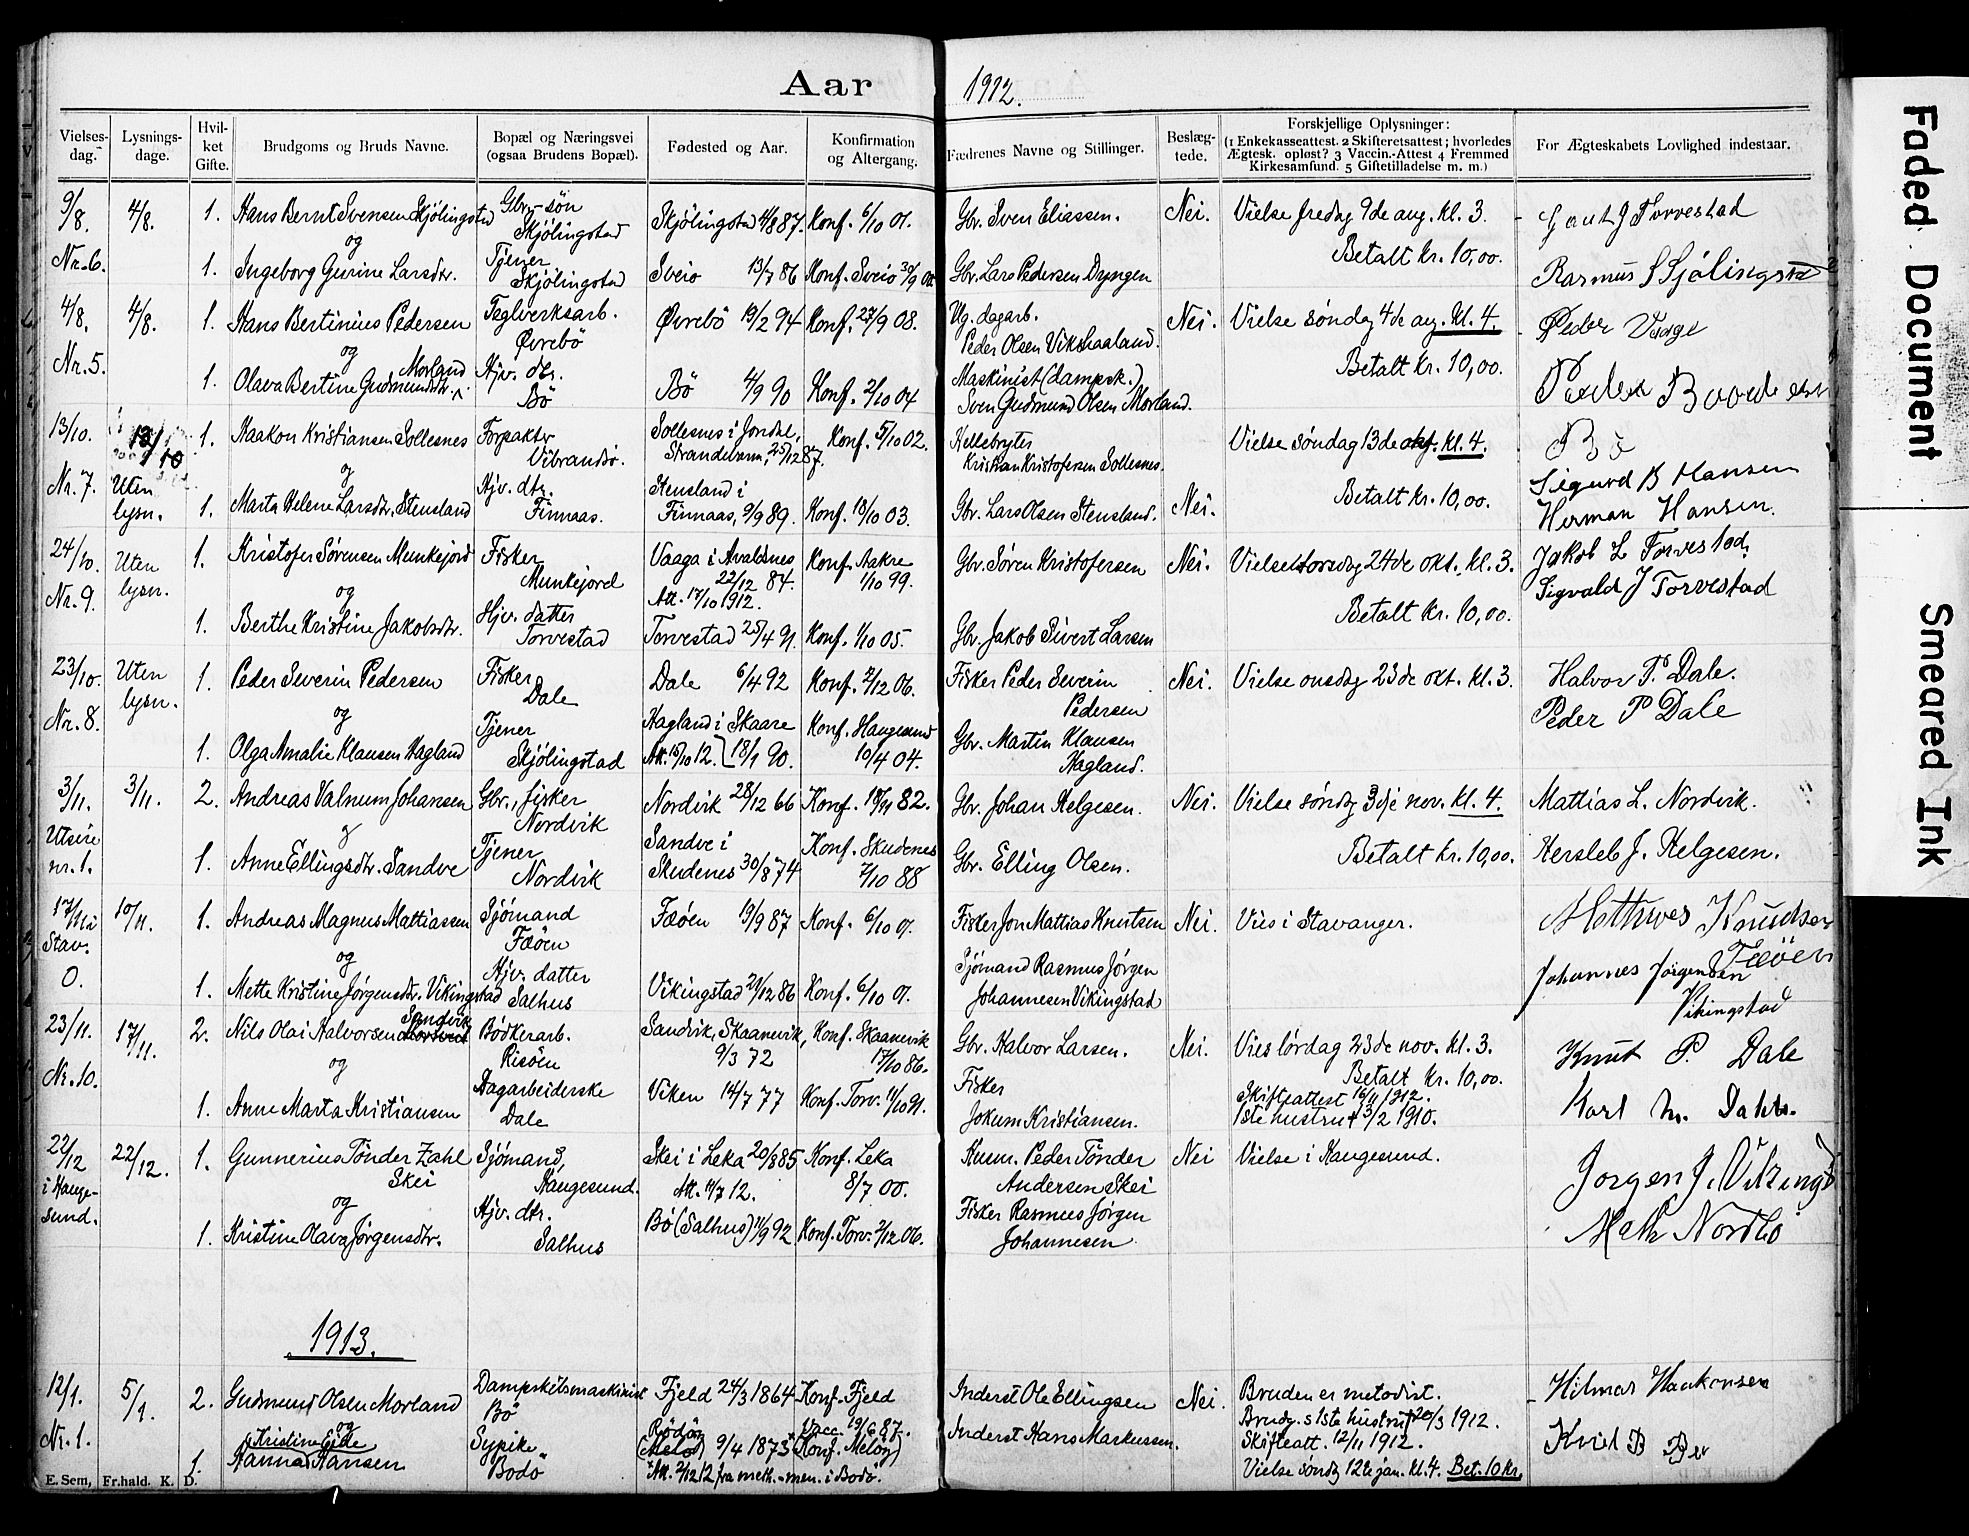 Aar 1912.
Vielses-dag. Lysnings-dage. Hvil-ket Gifte. Brudgoms og Bruds Navne. Bopæl og Næringsvei (ogsaa Brudens Bopæl). Fødested og Aar. Konfirmation og Altergang. Fædrenes Navne og Stillinger. Beslæg-tede. Forskjellige Oplysninger: (1 Enkekasseattest. 2 Skifteretsattest; hvorledes Ægtesk. opløst? 3 Vaccin.-Attest 4 Fremmed Kirkesamfund. 5 Giftetilladelse m. m.) For Ægteskabets Lovlighed indestaar.
9/8. 4/8. 1. Hans Bernt Svensen Skjölingstad Gbr.-sön Skjölingstad Skjölingstad 4/8 87. Konf. 6/10 01. Gbr. Sven Eliassen. Nei. Vielse fredag 9de aug. kl. 3. Gaut J Torvestad
og Betalt kr. 10,00.
Nr. 6. 1. Ingeborg Gurine Larsdtr. Tjener Skjölingstad Sveio 13/7 86 Konf. Sveio 30/9 00 Gbr. Lars Pedersen Dyngen Rasmus S Sjölingstad
4/8. 4/8. 1. Hans Bertinius Pedersen Teglverksarb. Øvrebö Øvrebö 19/2 94 Konf. 27/9 08. Ug. dagarb. Peder Olsen Vikshaaland. Nei. Vielse söndag 4de aug. kl. 4. Peder Vaage
og Betalt kr. 10,00.
Nr. 5. 1. Olava Bertine Gudmundsdtr. Morland Hjv. dtr. Bö Bö 4/9 90 Konf. 2/10 04 Maskinist (dampsk.) Sven Gudmund Olsen Morland.
13/10. 13/10 1. Haakon Kristiansen Sollesnes Forpakter Vibrandsö. Sollesnes i Jondal, Strandebarm, 25/12 87. Konf. 5/10 02. Hellebryter Kristian Kristofersen Sollesnes. Vielse söndag 13de okt. kl. 4. Bö
og Betalt kr. 10,00. Sigurd B Hansen
Nr. 7. Uten lysn. 1. Marta Helene Larsdtr. Stensland Hjv. dtr. Finnaas. Stensland i Finnaas, 9/9 89. Konf. 18/10 03. Gbr. Lars Olsen Stensland. Nei. Herman Hansen.
24/10. Uten lysn. 1. Kristofer Sörensen Munkejord Fisker Munkejord Vaaga i Avaldsnes 22/12 84. Att. 17/10 1912. Konf. Aakre 1/10 99. Gbr. Sören Kristofersen Nei. Vielse torsdag 24de okt. kl. 3. Jakob L Torvestad
Nr. 9. og Betalt kr. 10,00. Sigvald J Torvestad
1. Berthe Kristine Jakobsdtr. Hjv. datter Torvestad Torvestad 25/4 91. Konf. 1/10 05. Gbr. Jakob Sivert Larsen
23/10. Uten lysn. 1. Peder Severin Pedersen Fisker Dale Dale 6/4 92 Konf. 2/12 06. Fisker Peder Severin Pedersen Nei. Vielse onsdag 23de okt. kl. 3. Halvor P. Dale.
Nr. 8. og Peder P Dale
1. Olga Amalie Klausen Hagland Tjener Skjölingstad Hagland i Skaare Att. 15/10 12. 18/1 90. Konf. Haugesund 10/4 04. Gbr. Martin Klausen Hagland.
3/11. 3/11. 2. Andreas Valnum Johansen Gbr., fisker Nordvik Nordvik 28/12 66 Konf. 82. Gbr. Johan Helgesen. Nei. Vielse söndag 3dje nov. kl. 4. Mattias L. Nordvik.
Utsire og Betalt kr. 10,00.
nr. 1. 1. Anne Ellingsdtr. Sandve Tjener Nordvik Sandve i Skudenes 30/8 74 Konf. Skudenes 7/10 88 Gbr. Elling Olsen. Hersleb J. Helgesen.
17/11 i Stav. 10/11. 1. Andreas Magnus Mattiassen Sjömand Fæöen Fæöen 19/9 87 Konf. 6/10 01. Fisker Jon Mattias Knutsen Nei. Vies i Stavanger. Mathives Knudsen Fæöen
0. og
1. Mette Kristine Jörgensdtr. Vikingstad Hjv. datter Salhus Vikingstad 29/12 86 Konf. 6/10 01. Sjömand Rasmus Jörgen Johannesen Vikingstad Johannes Jörgensen Vikingstad
23/11. 17/11. 2. Nils Olai Halvorsen Sandvik Bödkerarb. Risöen Sandvik, Skaanevik, 9/3 72 Konf. Skaanevik 17/10 86. Gbr. Halvor Larsen. Nei. Vies lördag 23de nov. kl. 3. Knut P. Dale
og Betalt kr. 10,00.
Nr. 10. 1. Anne Marta Kristiansen Dagarbeiderske Dale Viken 14/7 77 Konf. Torv. 11/10 91. Fisker Jokum Kristiansen. Skifteattest 16/11 1912. 1ste hustru † 3/2 1910. Karl M. Dahle.
22/12 i Hauge-sund. 22/12. 1. Gunnerius Tönder Zahl Skei Sjömand, Haugesund. Skei i Leka 20/8 85 Att. 11/7 12. Konf. Leka 8/7 00. Husm. Peder Tönder Andersen Skei Nei Vielse i Haugesund. Jorgen J. Vikingst
og
1. Kristine Olava Jörgensdtr. Hjv. dtr. Salhus Bö (Salhus) 11/9 92 Konf. Torv. 2/12 06. Fisker Rasmus Jörgen Johannesen Math Nordbö
1913.
12/1. 5/1. 2. Gudmund Olsen Morland Dampskibsmaskinist Bö Fjeld 24/3 1864 Konf. Fjeld Vacc. 19/6 87. Inderst Ole Ellingsen Nei. Bruden er metodist. Hilmar Haakonsen
Nr. 1. og Brudg.s 1ste hustru † 20/3 1912.
1. Kristine Eide Hanna Hansen Sypike Bodö Rödön (Melöy) 9/4 1873 (Konf. Melöy) Inderst Hans Markussen. Skifteatt. 12/11 1912. Knut B Bö
Att. 2/12 12 fra meth.-men. i Bodö. Vielse söndag 12te jan. kl. 4. Bet. 10 kr.
E. Sem, Fr.hald. K. D.
Faded Document
Smeared Ink